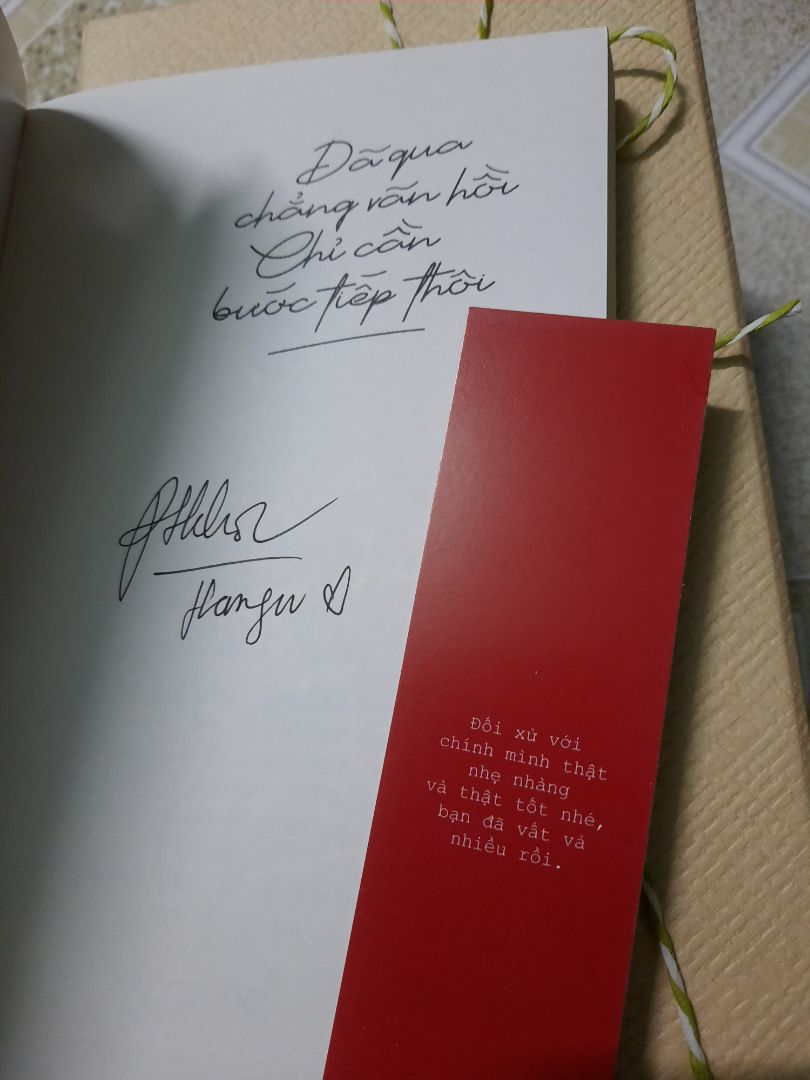 Đã qua
chẳng vãn hồi
Chỉ cần
bước tiếp thôi
Hangu
Đối xử với
chính mình thật
nhẹ nhàng
và thật tốt nhé,
bạn đã vất vả
nhiều rồi.